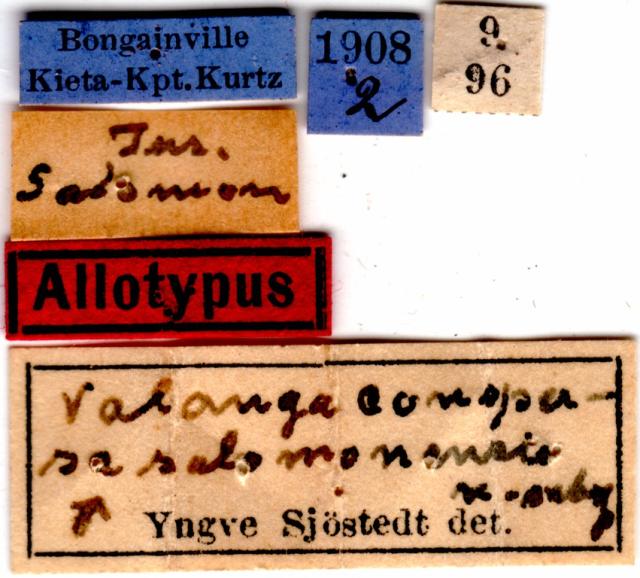 Bongainville
Kieta-Kpt. Kurtz
1908
2
9.
96
Ins.
Salomon
Allotypus
Valanga consper-
sa salomonensis
n. subsp
Yngve Sjöstedt det.